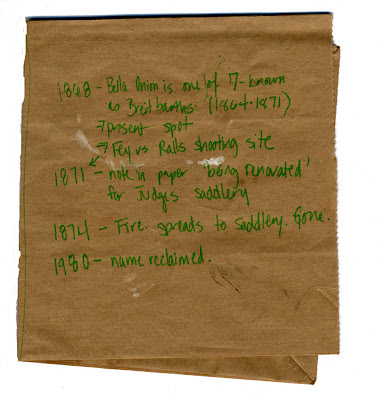 1868 - Bella Union is one of 7 - known
as Breitbarths. (1864-1871)
→ present spot
→ Fey vs Ralls shooting site
1871 - note in paper "being renovated"
for Judges saddlery
1874 - Fire. spreads to saddlery. Gone.
1980 - name reclaimed.